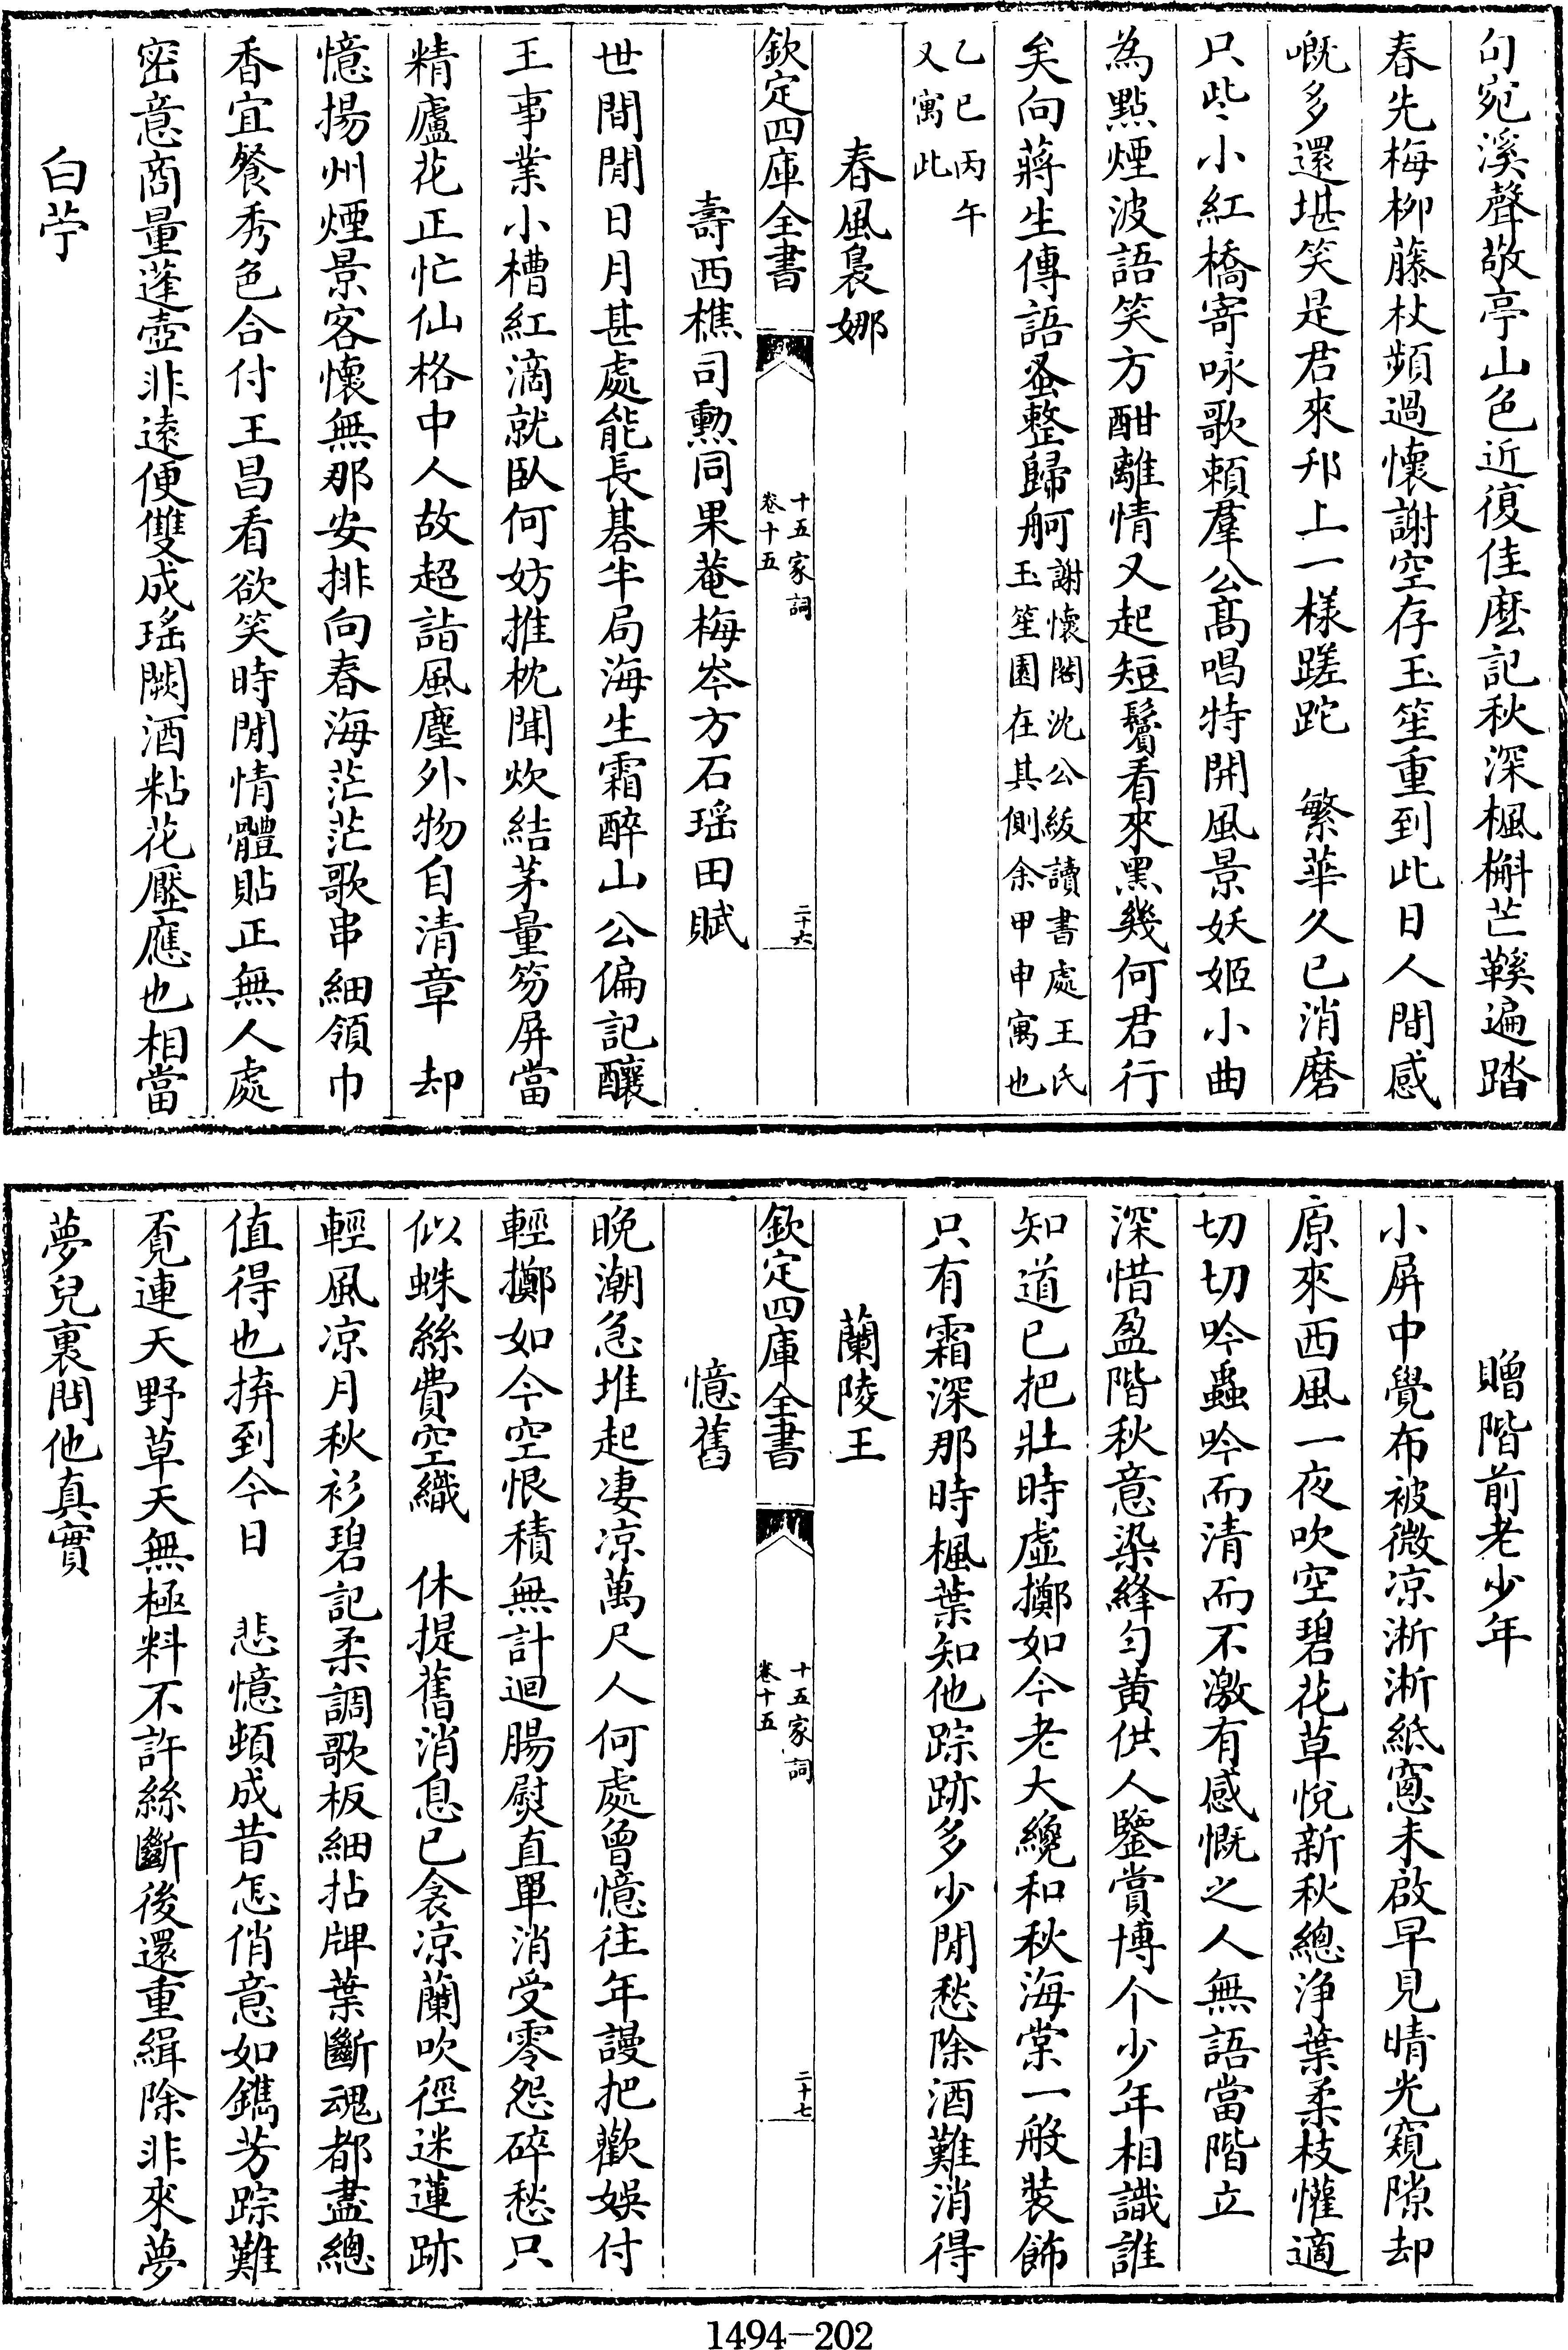 句宛溪聲敬亭山色近復佳麽記秋深楓槲芒鞵遍踏
春先梅柳藤杖頻過懷謝空存玉笙重到此日人間感
嘅多還堪笑是君來邗上一樣蹉跎　繁華久已消磨
只些小紅橋寄咏歌頼羣公髙唱特開風景妖姬小曲
為點煙波語笑方酣離情又起短鬢看來黑幾何君行
矣向蔣生傳語蚤整歸舸謝懷閣沈公紱讀書處王氏
玉笙園在其側余甲申寓也
乙巳丙午
又寓此
春風裊娜
欽定四庫全書
十五家詞
卷十五
二十六
壽西樵司勲同果菴梅岑方石瑶田賦
世間閒日月甚處能長碁半局海生霜醉山公偏記釀
王事業小槽紅滴就臥何妨推枕聞炊結茅量笏屏當
精廬花正忙仙格中人故超詣風塵外物自清章　却
憶揚州煙景客懷無那安排向春海茫茫歌串細領巾
香宜餐秀色合付王昌看欲笑時閒情體貼正無人處
密意商量蓬壺非遠便雙成瑶闕酒粘花壓應也相當
白苧
贈階前老少年
小屏中覺布被微凉淅淅紙窻未啟早見晴光窺隙却
原來西風一夜吹空碧花草悅新秋總浄葉柔枝懽適
切切吟蟲吟而清而不激有感慨之人無語當階立
深惜盈階秋意染絳勻黄供人鑒賞博个少年相識誰
知道已把壯時虛擲如今老大纔和秋海棠一般裝飾
只有霜深那時楓葉知他踪跡多少閒愁除酒難消得
蘭陵王
欽定四庫全書
十五家詞
卷十五
二十七
憶舊
晩潮急堆起凄凉萬尺人何處曾憶往年謾把歡娛付
輕擲如今空恨積無計迴腸熨直單消受零怨碎愁只
似蛛絲費空織　休提舊消息已衾凉蘭吹徑迷蓮跡
輕風凉月秋衫碧記柔調歌板細拈牌葉斷魂都盡總
值得也拚到今日　悲憶頓成昔怎俏意如鐫芳踪難
覔連天野草天無極料不許絲斷後還重緝除非來夢
夢兒裏問他真實
1494—202